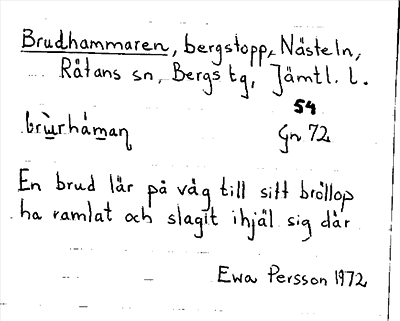 Brudhammaren, bergstopp, Nästeln,
Råtans sn, Bergs tg, Jämtl. l.
54
brùrhámaṇ Gn 72
En brud lär på väg till sitt bröllop
ha ramlat och slagit ihjäl sig där
Ewa Persson 1972